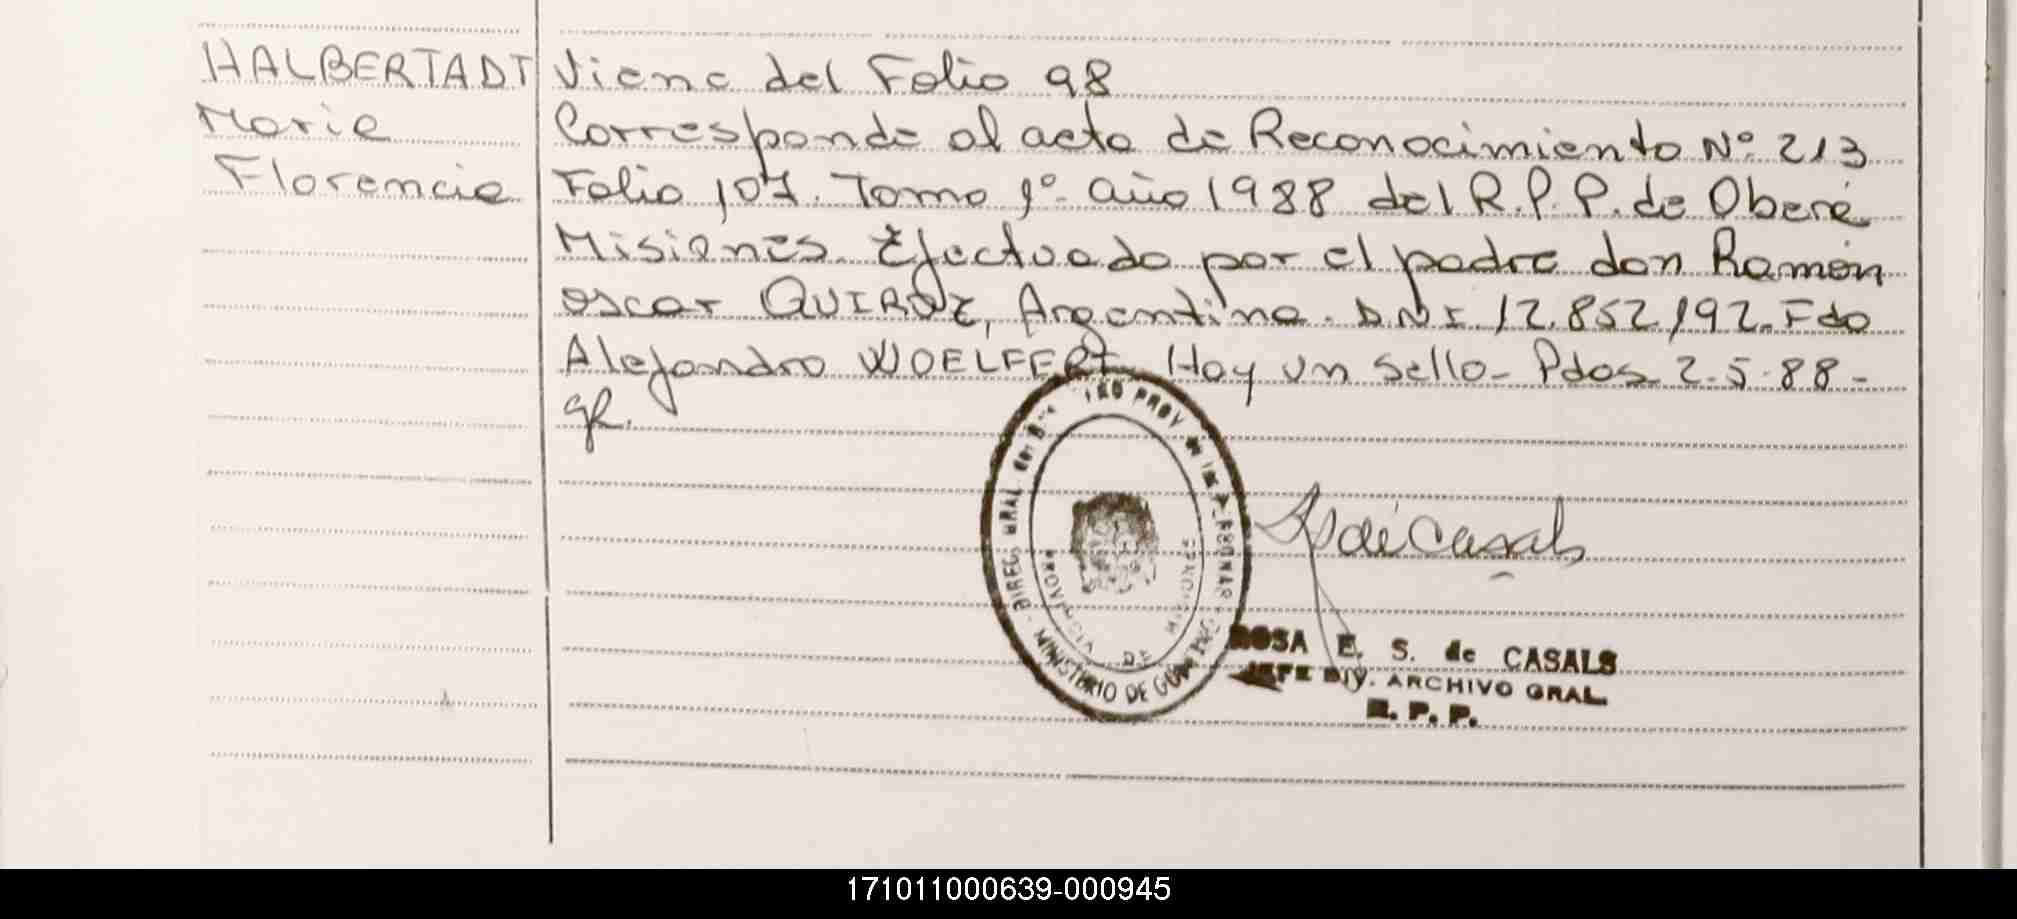 HALBERTADT
Maria
Florencia
Viene del Folio 98
Corresponde al acta de Reconocimiento Nº 213
Folio 107. Tomo 1º año 1988 del R.P.P. de Oberá
Misiones. Efectuado por el padre don Ramón
Oscar QUIROZ, Argentino. D.N.I. 12.852.192. Fdo
Alejandro WOELFERT. Hay un sello - Pdas 2-5-88-
gR.
DIREC. GRAL. del PROV de
MINISTERIO DE
PROVINCIA DE MISIONES
de Casals
ROSA E. S. de CASALS
JEFE DIV. ARCHIVO GRAL.
R. P. P.
171011000639-000945